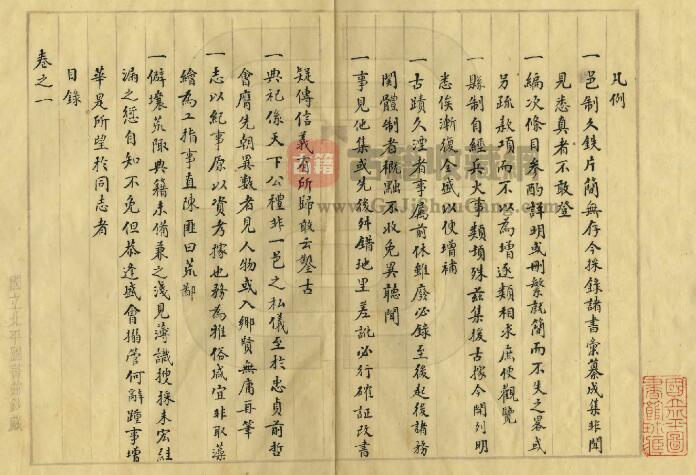 凡例
一邑制久鉄片簡無存今採錄諸書彙纂成集非聞
見悉真者不敢登
一編次條目參酌詳明或刪繁就簡而不失之畧或
另疏款項而不以為增逐類相求庶便觀覽
一縣制自經兵火事類殞殊茲集援古據今開列明
悉俟漸復全盛以便增補
一古蹟久湮者事屬前休雖廢必錄至後起後諸務
関體制者概黜不收免異聽聞
一事見他集或先後舛錯地里差訛必行確証改書
疑傳信義有所歸敢云鑿古
一典祀係天下公禮非一邑之私儀至於忠貞前哲
會膺先朝異數者見人物或入鄉賢無庸再筆
一志以紀事原以資考據也務為雅俗咸宜非取藻
繪為工指事直陳匪曰荒鄙
一僻壤荒陬典籍未備兼之淺見薄識搜採未宏絓
漏之愆自知不免但恭逢盛會搦管何辭踵事增
華是所望於同志者
目錄
卷之一
古籍
www.GuJiShouCang.com